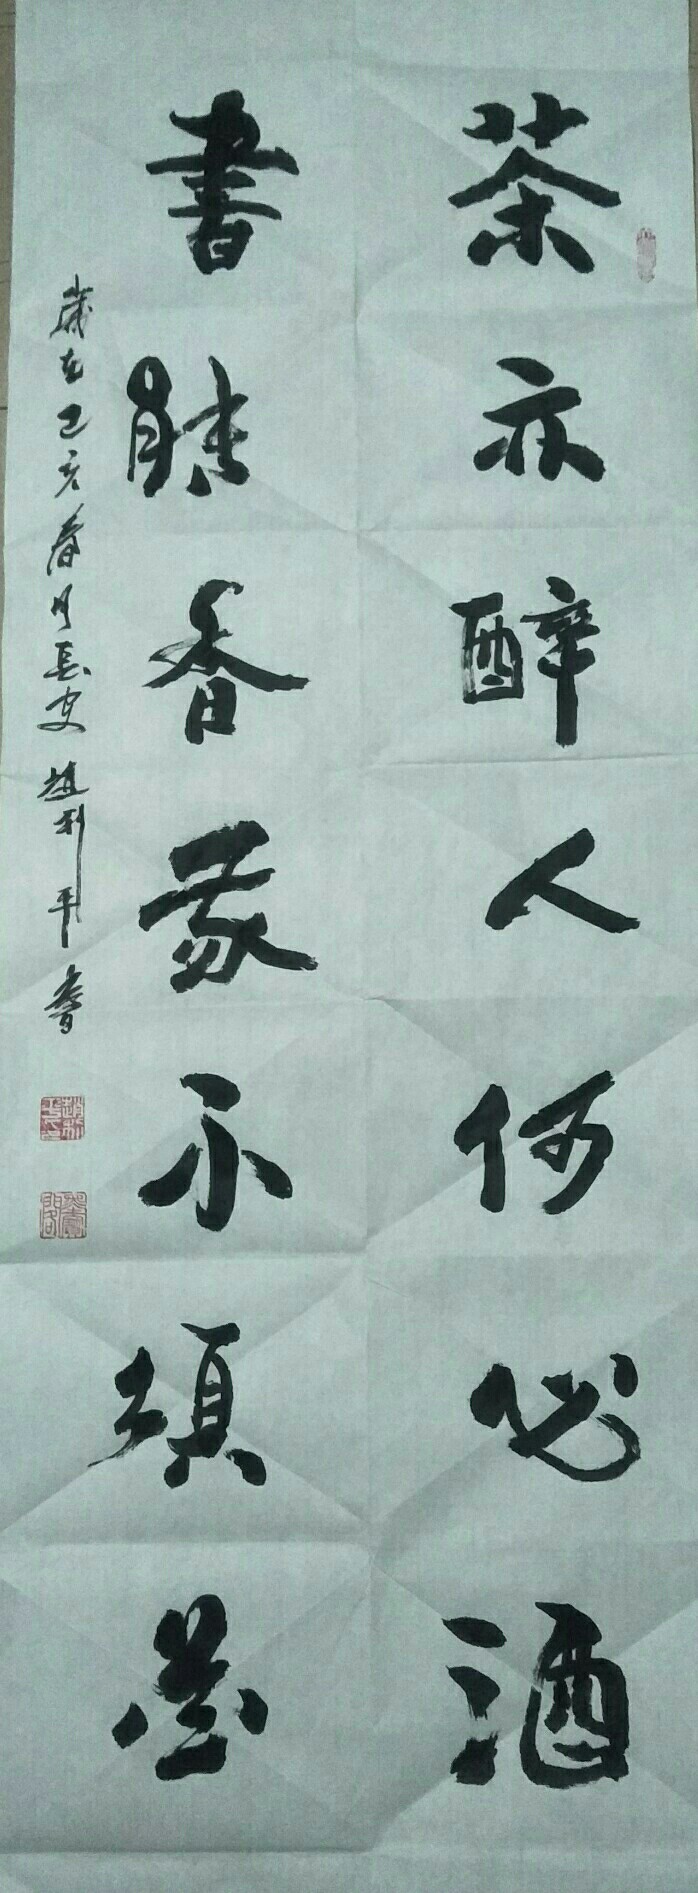 茶亦醉人何必酒
書能香不須墨
歲在己亥春月長安趙利平書